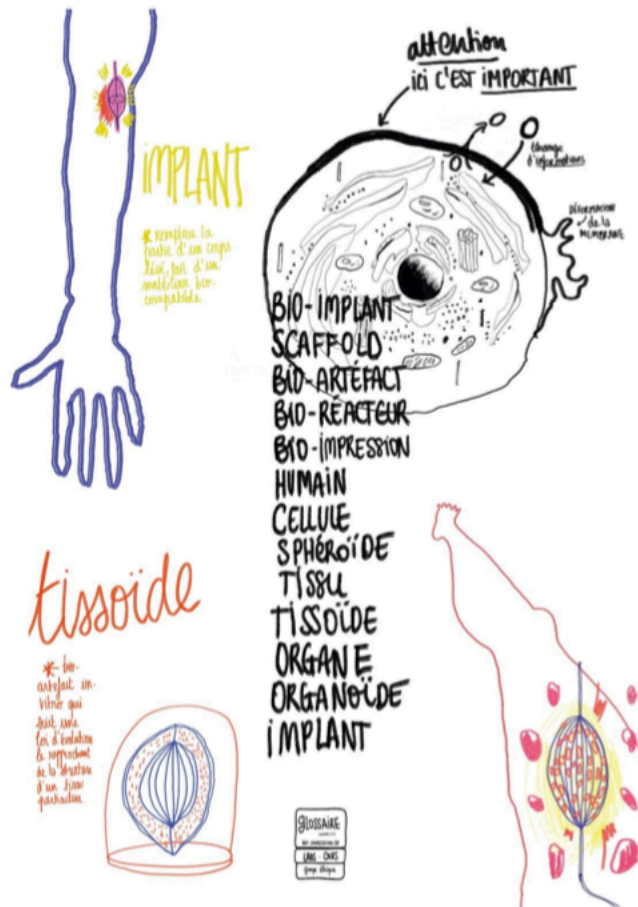 attention
ici C'EST IMPORTANT
échange
d'informations
déformation
de la
MEMBRANE
iMPLANT
* remplace la
partie d'un corps
lésé, fait d'un
matériau bio-
compatible.
BIO-IMPLANT
SCAFFOLD
BIO-ARTÉFACT
BIO-RÉACTEUR
BIO-IMPRESSION
HUMAIN
CELLULE
SPHÉROÏDE
TISSU
TISSOÏDE
ORGANE
ORGANOÏDE
iMPLANT
tissoïde
* bio-
artefact in-
vitro qui
suit une
loi d'évolution
le rapprochant
de la structure
d'un tissu
particulier.
GLOSSAIRE
BIO-IMPRESSION 3D
LABS - CNRS
groupe éthique